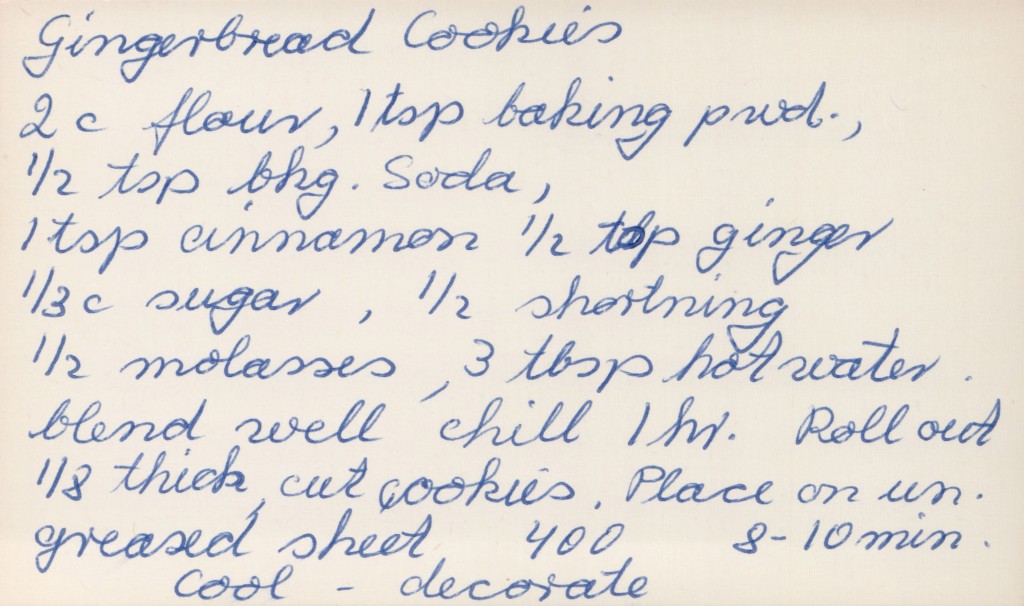 Gingerbread Cookies
2 c flour, 1 tsp baking pwd.,
1/2 tsp bkg. Soda,
1 tsp cinnamon 1/2 tsp ginger
1/3 c sugar, 1/2 shortning
1/2 molasses, 3 tbsp hot water.
blend well chill 1 hr. Roll out
1/8 thick, cut cookies. Place on un.
greased sheet 400 8-10 min.
Cool - decorate